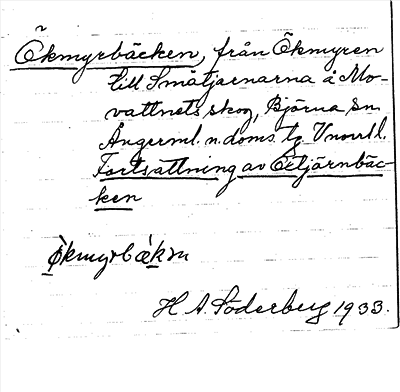 Ökmyrbäcken, från Ökmyren
till Småtjärnarna å Mo-
vattnets skog, Björna sn
Ångerml. n. doms. tg Vnorrl.
Fortsättning av Öltjärnbäc-
ken
økmyrbækɳ
H A. Söderberg 1933.